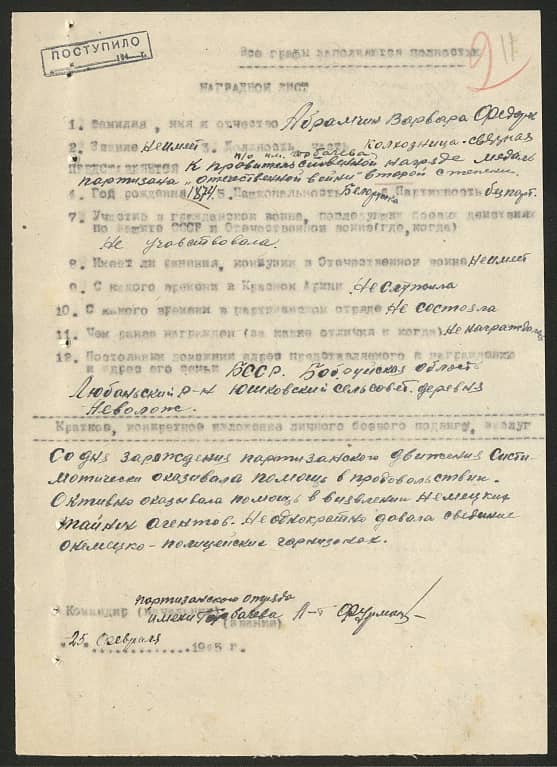 ПОСТУПИЛО
194 г.
Все графы заполняются полностью
НАГРАДНОЙ ЛИСТ
1. Фамилия, имя и отчество Абрамчик Варвара Федор
2. Звание Неимеет 3. Должность, часть п/о им. колхозница-связная
ПРЕДСТАВЛЯЕТСЯ К правительственной награде медаль
партизана "Отечественной войны" второй степени.
4. Год рождения 1874. 5. Национальность Белоруска Партийность безпарт.
7. Участие в гражданской войне, последующих боевых действиях
по защите СССР и Отечественной войне (где, когда)
Не учавствовала.
8. Имеет ли ранения, контузии в Отечественной войне Неимеет
9. С какого времени в Красной Армии Неслужила
10. С какого времени в партизанском отряде Не состояла
11. Чем ранее награжден (за какие отличия и когда) Ненаграждалась
12. Постоянный домашний адрес представляемого к награждению
и адрес его семьи БССР. Бобруйская область
Любаньский р-н Юшковский сельсовет. деревня
Неволож.
Краткое, конкретное изложение личного боевого подвига, заслуг
Со дня зарождения партизанского движения Систи-
мотически оказывала помощь в продовольствии.
Октивно оказывала помощь в виявлении Немецких
тайных агентов. Не однократно давала сведение
о немецко-полицейских гарнизонах.
партизанского отряда
Командир (начальник) имени А-т Фурман
(звание)
"25" Февраля 1945 г.